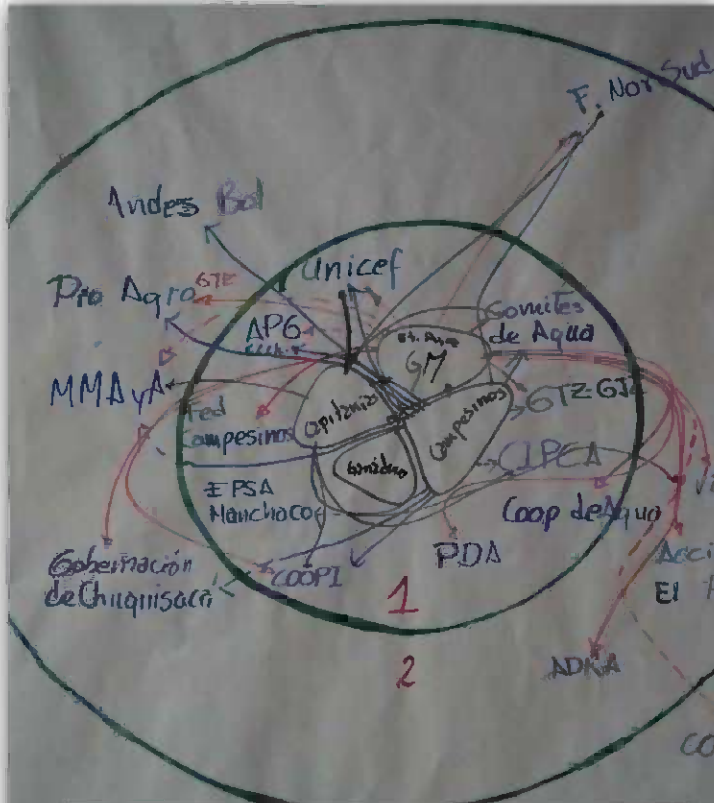 F. Nor Sud
Andes Bol
Unicef
GTZ
Pro Agro
APG
Comités
de Agua
GM
MMAyA
Fed
Campesinos
Capitanias
Campesinos
GTZ GIZ
CIPCA
EPSA
Manchaco
Coop de Agua
PDA
Gobernación
de Chuquisaca
COOPI
Acci
El
1
2
ADRA
CO